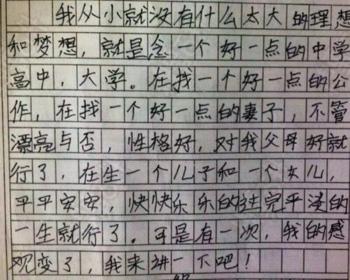 我从小就没有什么太大的理想
和梦想，就是念一个好一点的中学
高中，大学。在找一个好一点的公
作，在找一个好一点的妻子，不管
漂亮与否，性格好，对我父母好就
行了，在生一个儿子和一个女儿，
平平安安，快快乐乐的过完平淡的
一生就行了。可是有一次，我的感
观变了，我来讲一下吧！